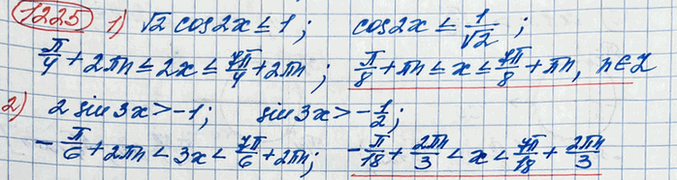 1225 1) √2 cos2x ≤ 1; cos2x ≤ 1/√2;
π/4 + 2πn ≤ 2x ≤ 7π/4 + 2πn; π/8 + πn ≤ x ≤ 7π/8 + πn, n∈Z
2) 2 sin3x > -1; sin3x > -1/2;
-π/6 + 2πn < 3x < 7π/6 + 2πn; -π/18 + 2πn/3 < x < 7π/18 + 2πn/3